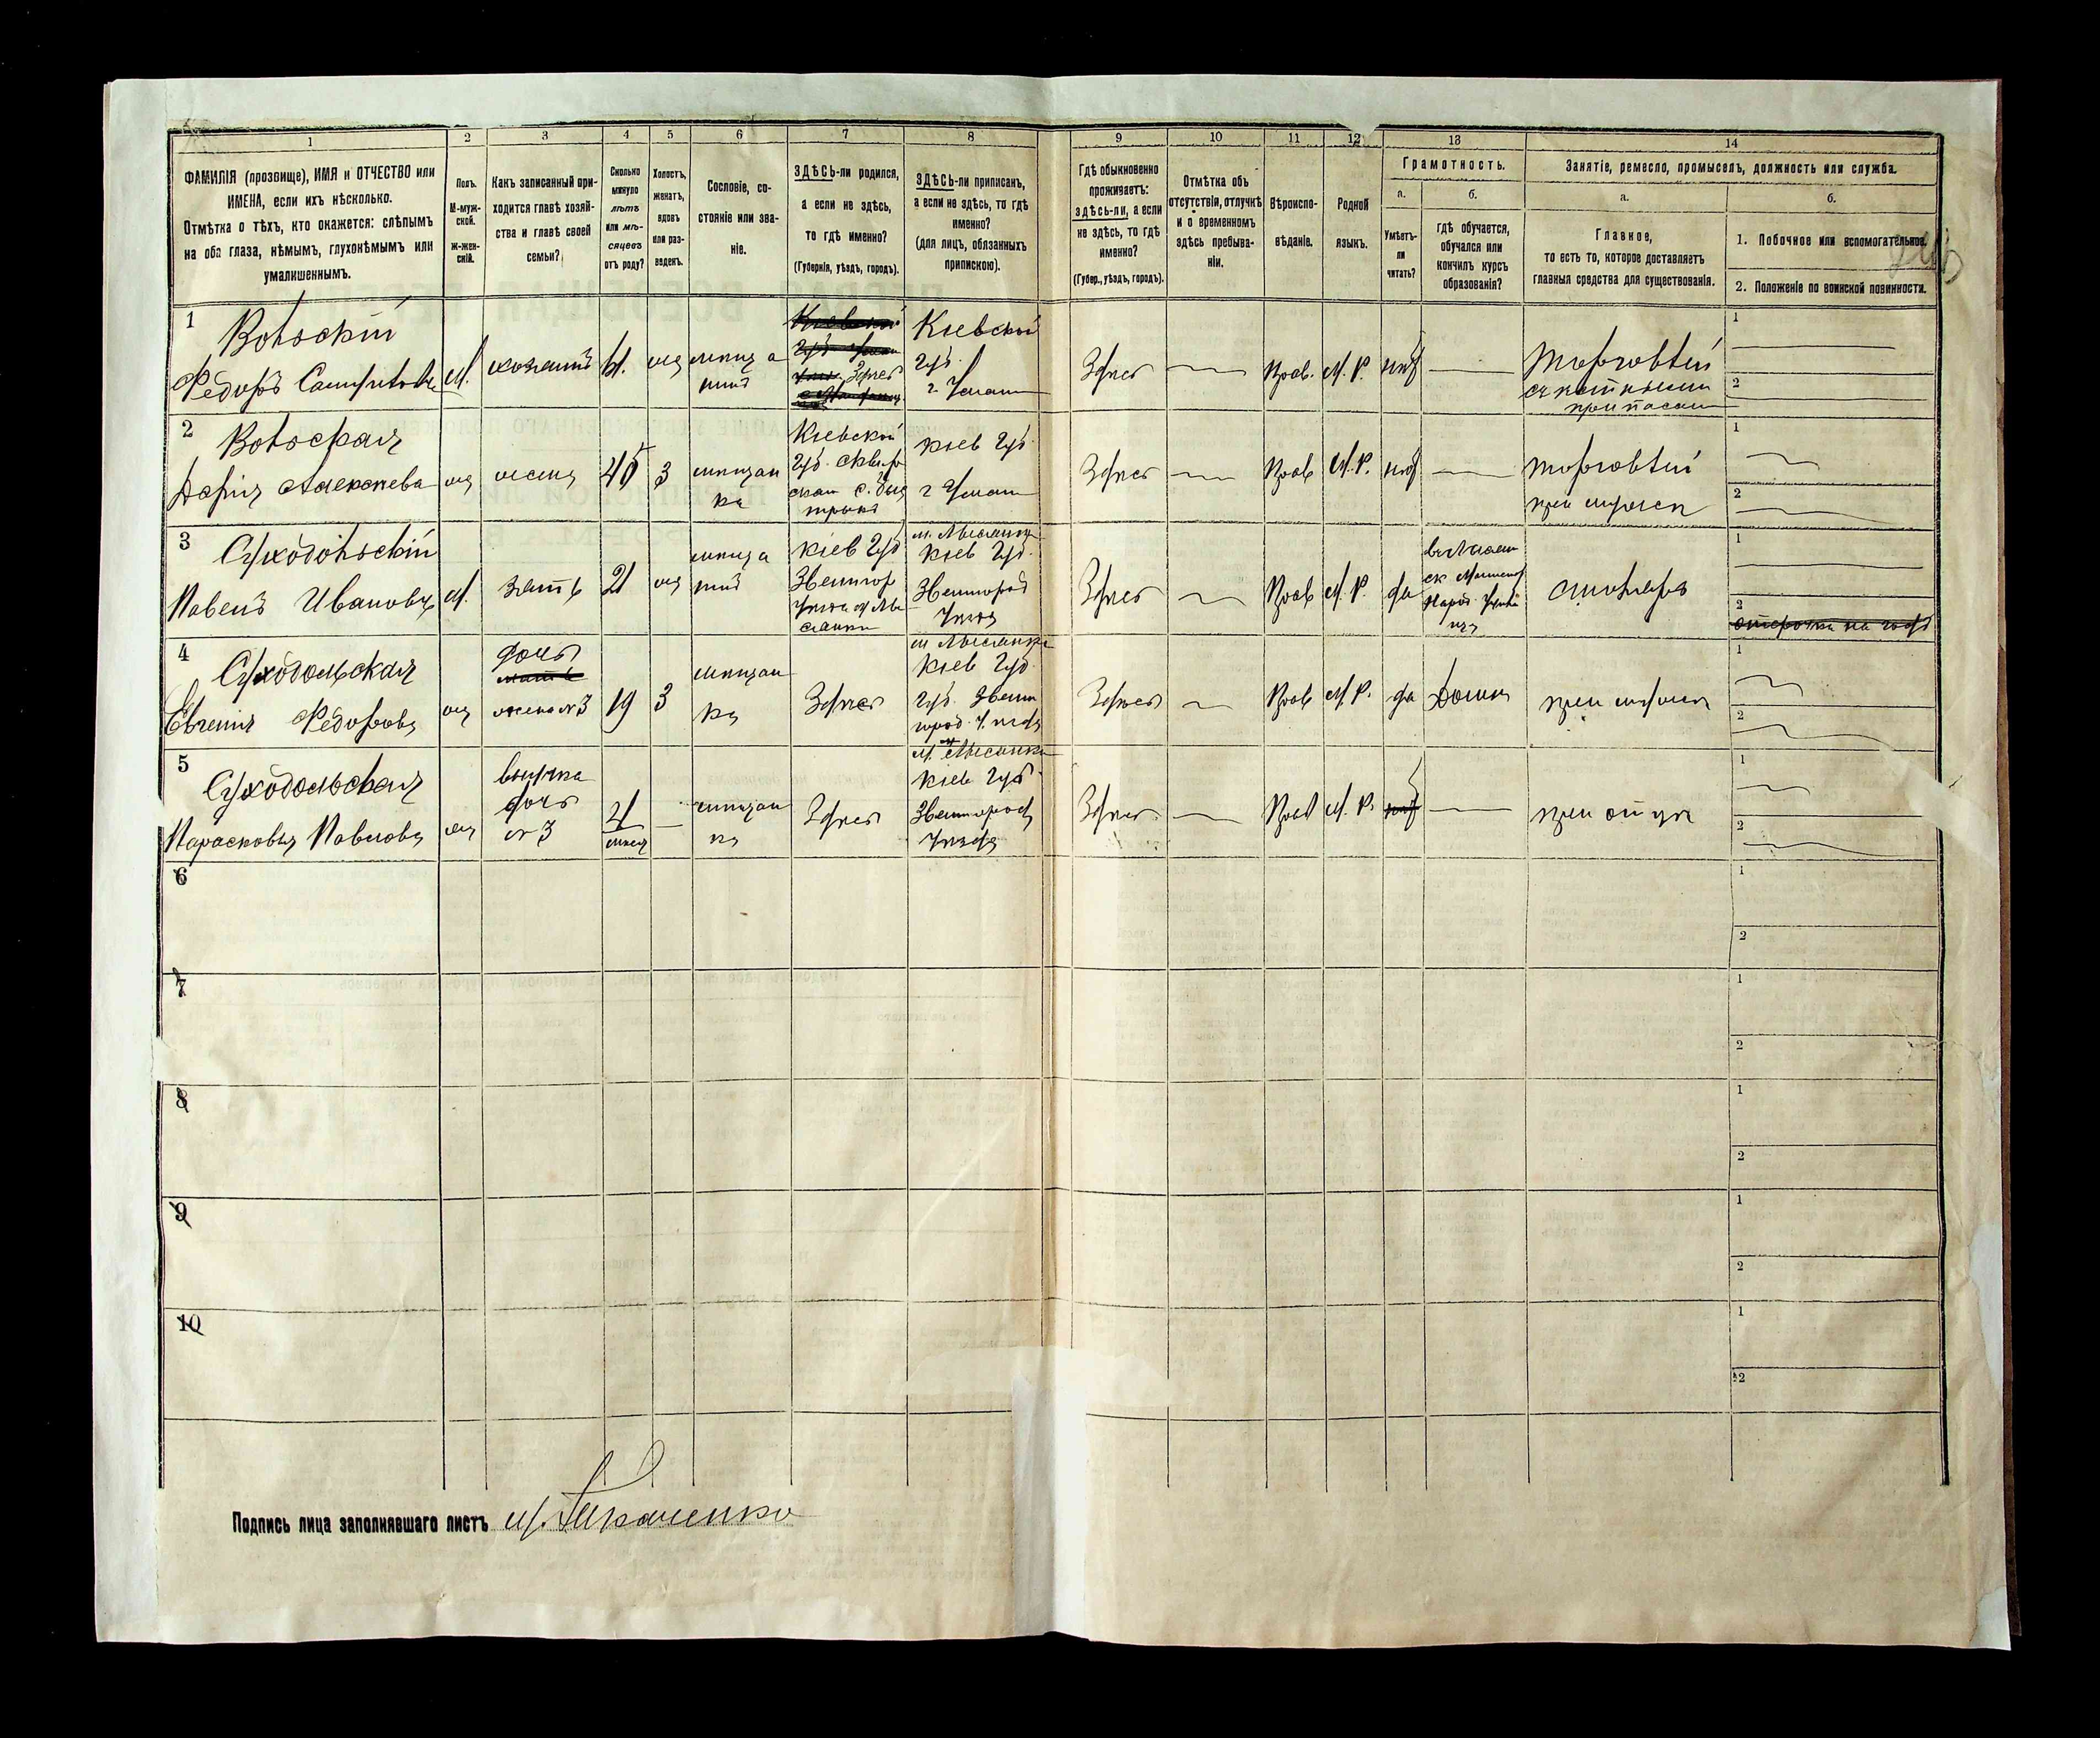 1 2 3 4 5 6 7 8 9 10 11 12 13 14
ФАМИЛІЯ (прозвище), ИМЯ и ОТЧЕСТВО или
ИМЕНА, если ихъ нѣсколько.
Отмѣтка о тѣхъ, кто окажется: слѣпымъ
на оба глаза, нѣмымъ, глухонѣмымъ или
умалишеннымъ.
Полъ.
М-муж-
ской.
Ж-жен-
скій.
Какъ записанный при-
ходится главѣ хозяй-
ства и главѣ своей
семьи?
Сколько
минуло
лѣтъ
или мѣ-
сяцевъ
отъ роду?
Холостъ,
женатъ,
вдовъ
или раз-
веденъ.
Сословіе, со-
стояніе или зва-
ніе.
ЗДѢСЬ-ли родился,
а если не здѣсь,
то гдѣ именно?
(Губернія, уѣздъ, городъ).
ЗДѢСЬ-ли приписанъ,
а если не здѣсь, то гдѣ
именно?
(для лицъ, обязанныхъ
припискою).
Гдѣ обыкновенно
проживаетъ:
здѣсь-ли, а если
не здѣсь, то гдѣ
именно?
(Губер., уѣздъ, городъ).
Отмѣтка объ
отсутствіи, отлучкѣ
и о временномъ
здѣсь пребыва-
ніи.
Вѣроиспо-
вѣданіе.
Родной
языкъ.
Грамотность.
а.
Умѣетъ-
ли
читать?
б.
гдѣ обучается,
обучался или
кончилъ курсъ
образованія?
Занятіе, ремесло, промыселъ, должность или служба.
а.
Главное,
то есть то, которое доставляетъ
главныя средства для существованія.
б.
1. Побочное или вспомогательное.
2. Положеніе по воинской повинности.
1
Федоръ
м.
хозяинъ
Здѣсь
Кіевской
губ.
г. Умань
Здѣсь
Прав.
М. Р.
нѣт
Торговтый
1
2
2
Дарія Алексѣева
жена
45
3
мѣщан
ка
Кіевской
губ.
Кіев губ.
г Умань
Здѣсь
Прав
М. Р.
нѣт
Торговтый
при мужѣ
1
2
3
Суходольскій
Павелъ Ивановъ
м.
зять
21
Кіев губ
Звенигор
м. Лысянка
Кіев губ.
Звенигород
Уѣзд
Здѣсь
Прав
М. Р.
да
столяръ
1
2
отсрочка на годъ
4
Суходольская
Евгенія Федорова
дочь
жена № 3
19
3
мѣщан
ка
Здѣсь
м Лысянка
Кіев губ.
губ. Звени
город. Уѣзд
Здѣсь
Прав
М. Р.
да
Дома
при мужѣ
1
2
5
Суходольская
Парасковья Павлова
внучка
дочь
№ 3
мѣщан
ка
Здѣсь
м. Лысянка
Кіев губ.
Звенигород
Уѣзд
Здѣсь
Прав
М. Р.
нѣт
при отцѣ
1
2
6
1
2
7
1
2
8
1
2
9
1
2
10
1
2
Подпись лица заполнявшаго листъ Ткаченко